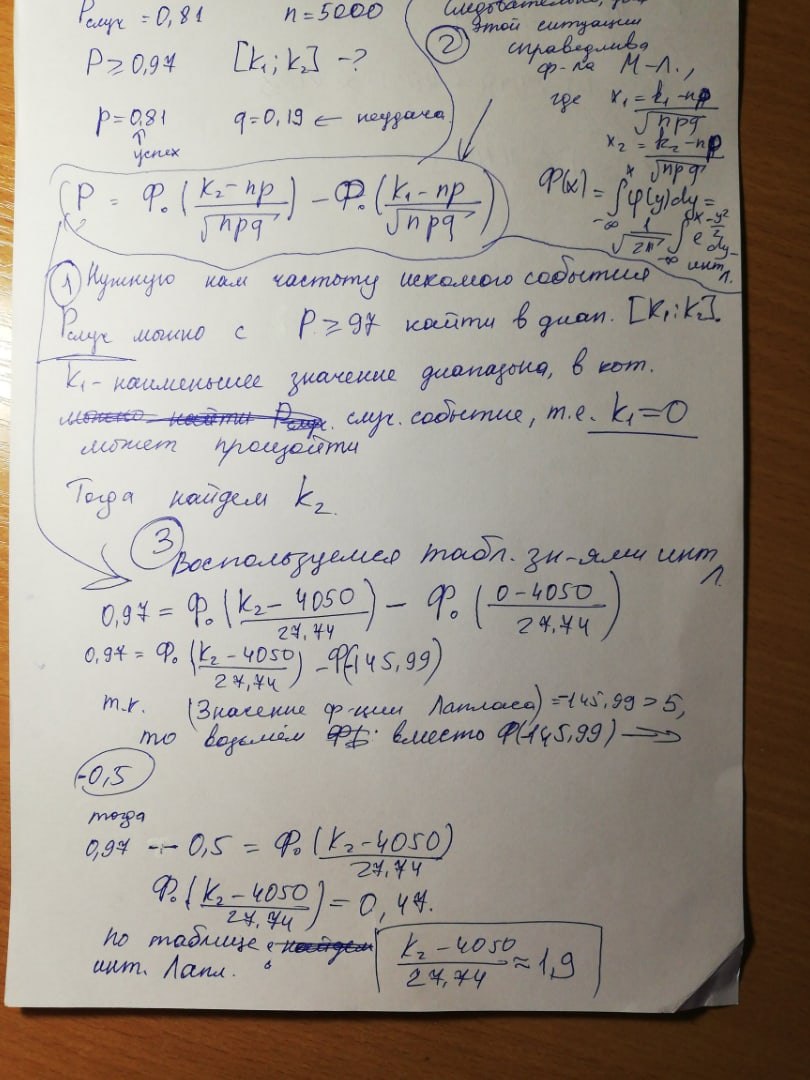 Pслуч = 0,81 n = 5000
P ≥ 0,97 [k₁; k₂] - ?
p = 0,81 q = 0,19 ← неудача
↑
успех
этой ситуации
②
справедлива
ф-ла М-Л.,
где x₁ = (k₁ - np)/√npq
x₂ = (k₂ - np)/√npq
P = Ф₀((k₂ - np)/√npq) - Ф₀((k₁ - np)/√npq)
Ф(x) = ∫_{-∞}^{x} φ(y)dy =
1/√2π ∫_{-∞}^{x} e^{-y²/2} dy -
инт. Л.
① Нужную нам частоту искомого события
Pслуч можно с P ≥ 97 найти в диап. [k₁; k₂].
k₁ - наименьшее значение диапазона, в кот.
можно найти Pслуч. случ. событие, т.е. k₁ = 0
может произойти
Тогда найдем k₂
③ Воспользуемся табл. зн-ями инт. Л.
0,97 = Ф₀((k₂ - 4050)/27,74) - Ф₀((0 - 4050)/27,74)
0,97 = Ф₀((k₂ - 4050)/27,74) - Ф(-145,99)
т.к. (Значение ф-ции Лапласа) = -145,99 > 5,
то возьмём вместо Ф(-145,99) →
-0,5
тогда
0,97 - 0,5 = Ф₀((k₂ - 4050)/27,74)
Ф₀((k₂ - 4050)/27,74) = 0,47.
по таблице найдем
инт. Лапл.
(k₂ - 4050)/27,74 ≈ 1,9